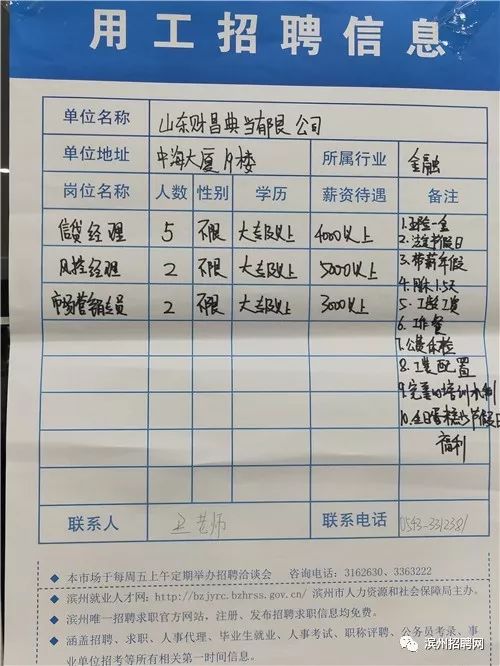 用工招聘信息
单位名称 山东财昌典当有限公司
单位地址 中海大厦19楼 所属行业 金融
岗位名称 人数 性别 学历 薪资待遇 备注
信贷经理 5 不限 大专及以上 4000以上
风控经理 2 不限 大专及以上 5000以上
市场营销专员 2 不限 大专及以上 3000以上
1.五险一金
2.法定节假日
3.带薪年假
4.周休1.5天
5.工龄工资
6.工作餐
7.公费体检
8.工装配置
9.完善的培训机制
10.生日蛋糕与节假日
福利
联系人 联系电话 0543-3312381
◆ 本市场于每周五上午定期举办招聘洽谈会 咨询电话：3162630、3363222
◆ 滨州就业人才网：http://bzjyrc.bzhrss.gov.cn/ 滨州市人力资源和社会保障局主办。
◆ 滨州唯一招聘求职官方网站，注册、发布招聘求职信息均免费。
◆ 涵盖招聘、求职、人事代理、毕业生就业、人事考试、职称评聘、公务员考录、事
业单位招考等所有相关第一时间信息。
滨州招聘网